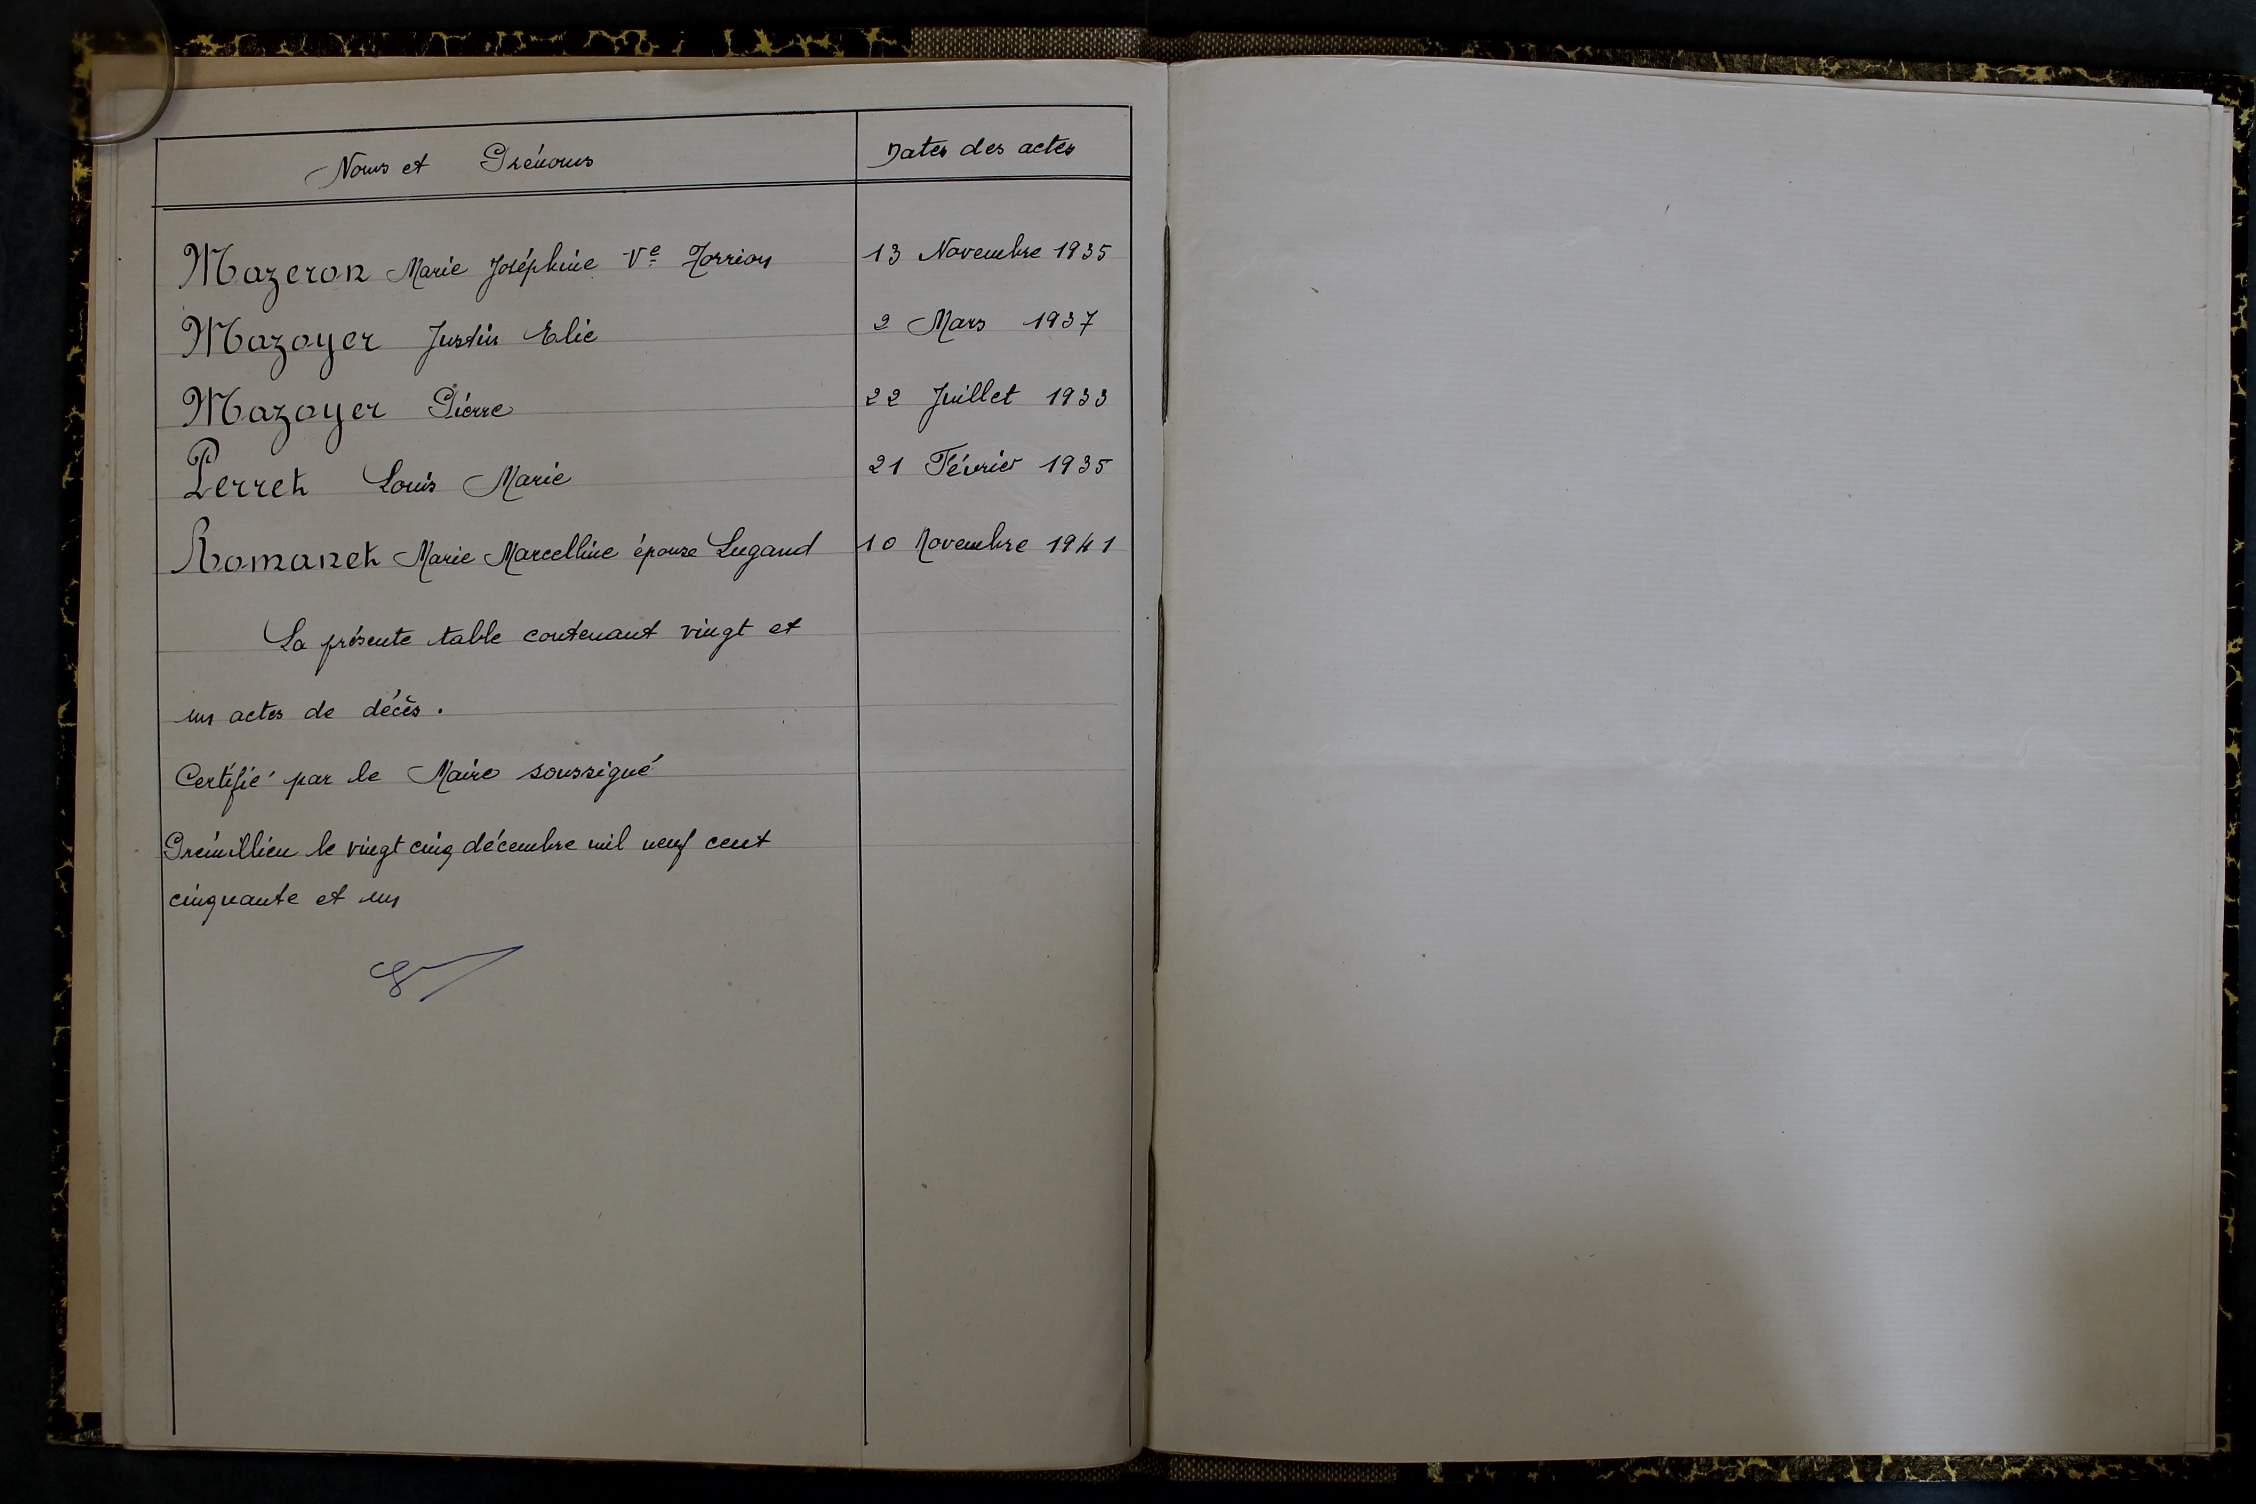 Noms et Prénoms Dates des actes
Mazeron Marie Joséphine Vᵉ Torrion 13 Novembre 1935
Mazoyer Justin Elie 2 Mars 1937
Mazoyer Pierre 22 Juillet 1933
Perret Louis Marie 21 Février 1935
Romanet Marie Marcelline épouse Lugand 10 Novembre 1941
La présente table contenant vingt et
un actes de décès.
Certifié par le Maire soussigné
Prémillieu le vingt cinq décembre mil neuf cent
cinquante et un